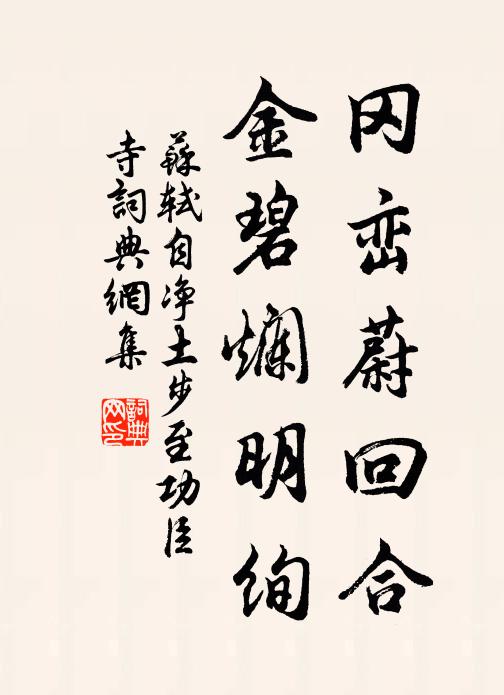 冈峦蔚回合
金碧爛明绚
蘇轼自净土步至功臣
寺詞典網集
詞典
网印